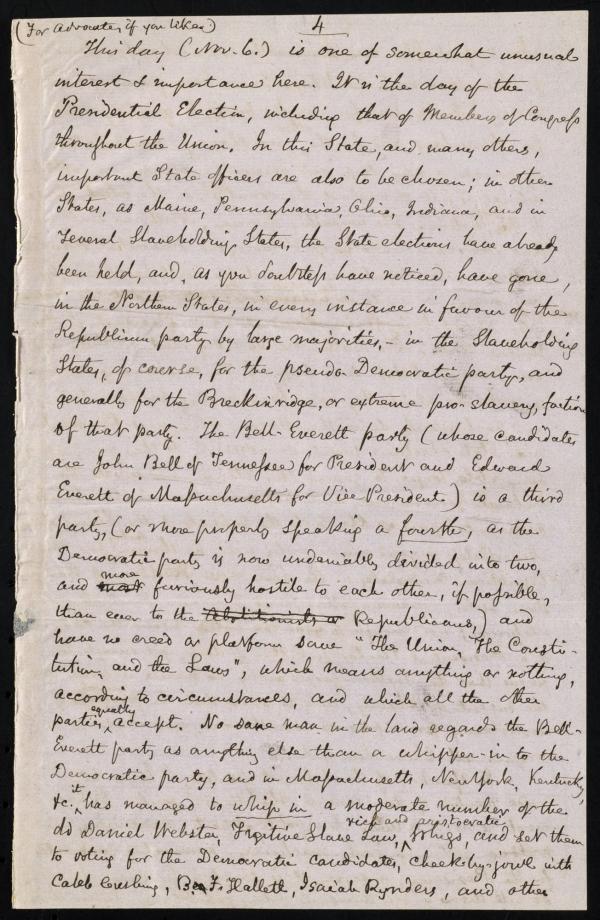 (For Advocate, if you like.)
4
This day (Nov. 6.) is one of somewhat unusual
interest & importance here. It is the day of the
Presidential Election, including that of Members of Congress
throughout the Union. In this State, and many others,
important State officers are also to be chosen; in other
States, as Maine, Pennsylvania, Ohio, Indiana, and in
several Slaveholding States, the State elections have already
been held, and, as you doubtless have noticed, have gone,
in the Northern States, in every instance in favour of the
Republican party by large majorities, - in the Slaveholding
States, of course, for the pseudo-Democratic party, and
generally for the Breckinridge, or extreme pro-slavery, faction
of that party. The Bell-Everett party (whose candidates
are John Bell of Tennessee for President and Edward
Everett of Massachusetts for Vice President) is a third
party, (or more properly speaking a fourth, as the
Democratic party is now undeniably divided into two,
and most more furiously hostile to each other, if possible,
than ever to the Abolitionists or Republicans,) and
have no creed or platform save "The Union, The Consti-
tution, and the Laws", which means anything or nothing,
according to circumstances, and which all the other
parties equally accept. No sane man in the land regards the Bell-
Everett party as anything else than a whipper-in to the
Democratic party, and in Massachusetts, New York, Kentucky,
&c. it has managed to whip in a moderate number of the
old Daniel Webster, Fugitive Slave Law, rich and aristocratic Whigs, and set them
to voting for the Democratic candidates, cheek-by-jowl with
Caleb Cushing, B. F. Hallett, Isaiah Rynders, and other